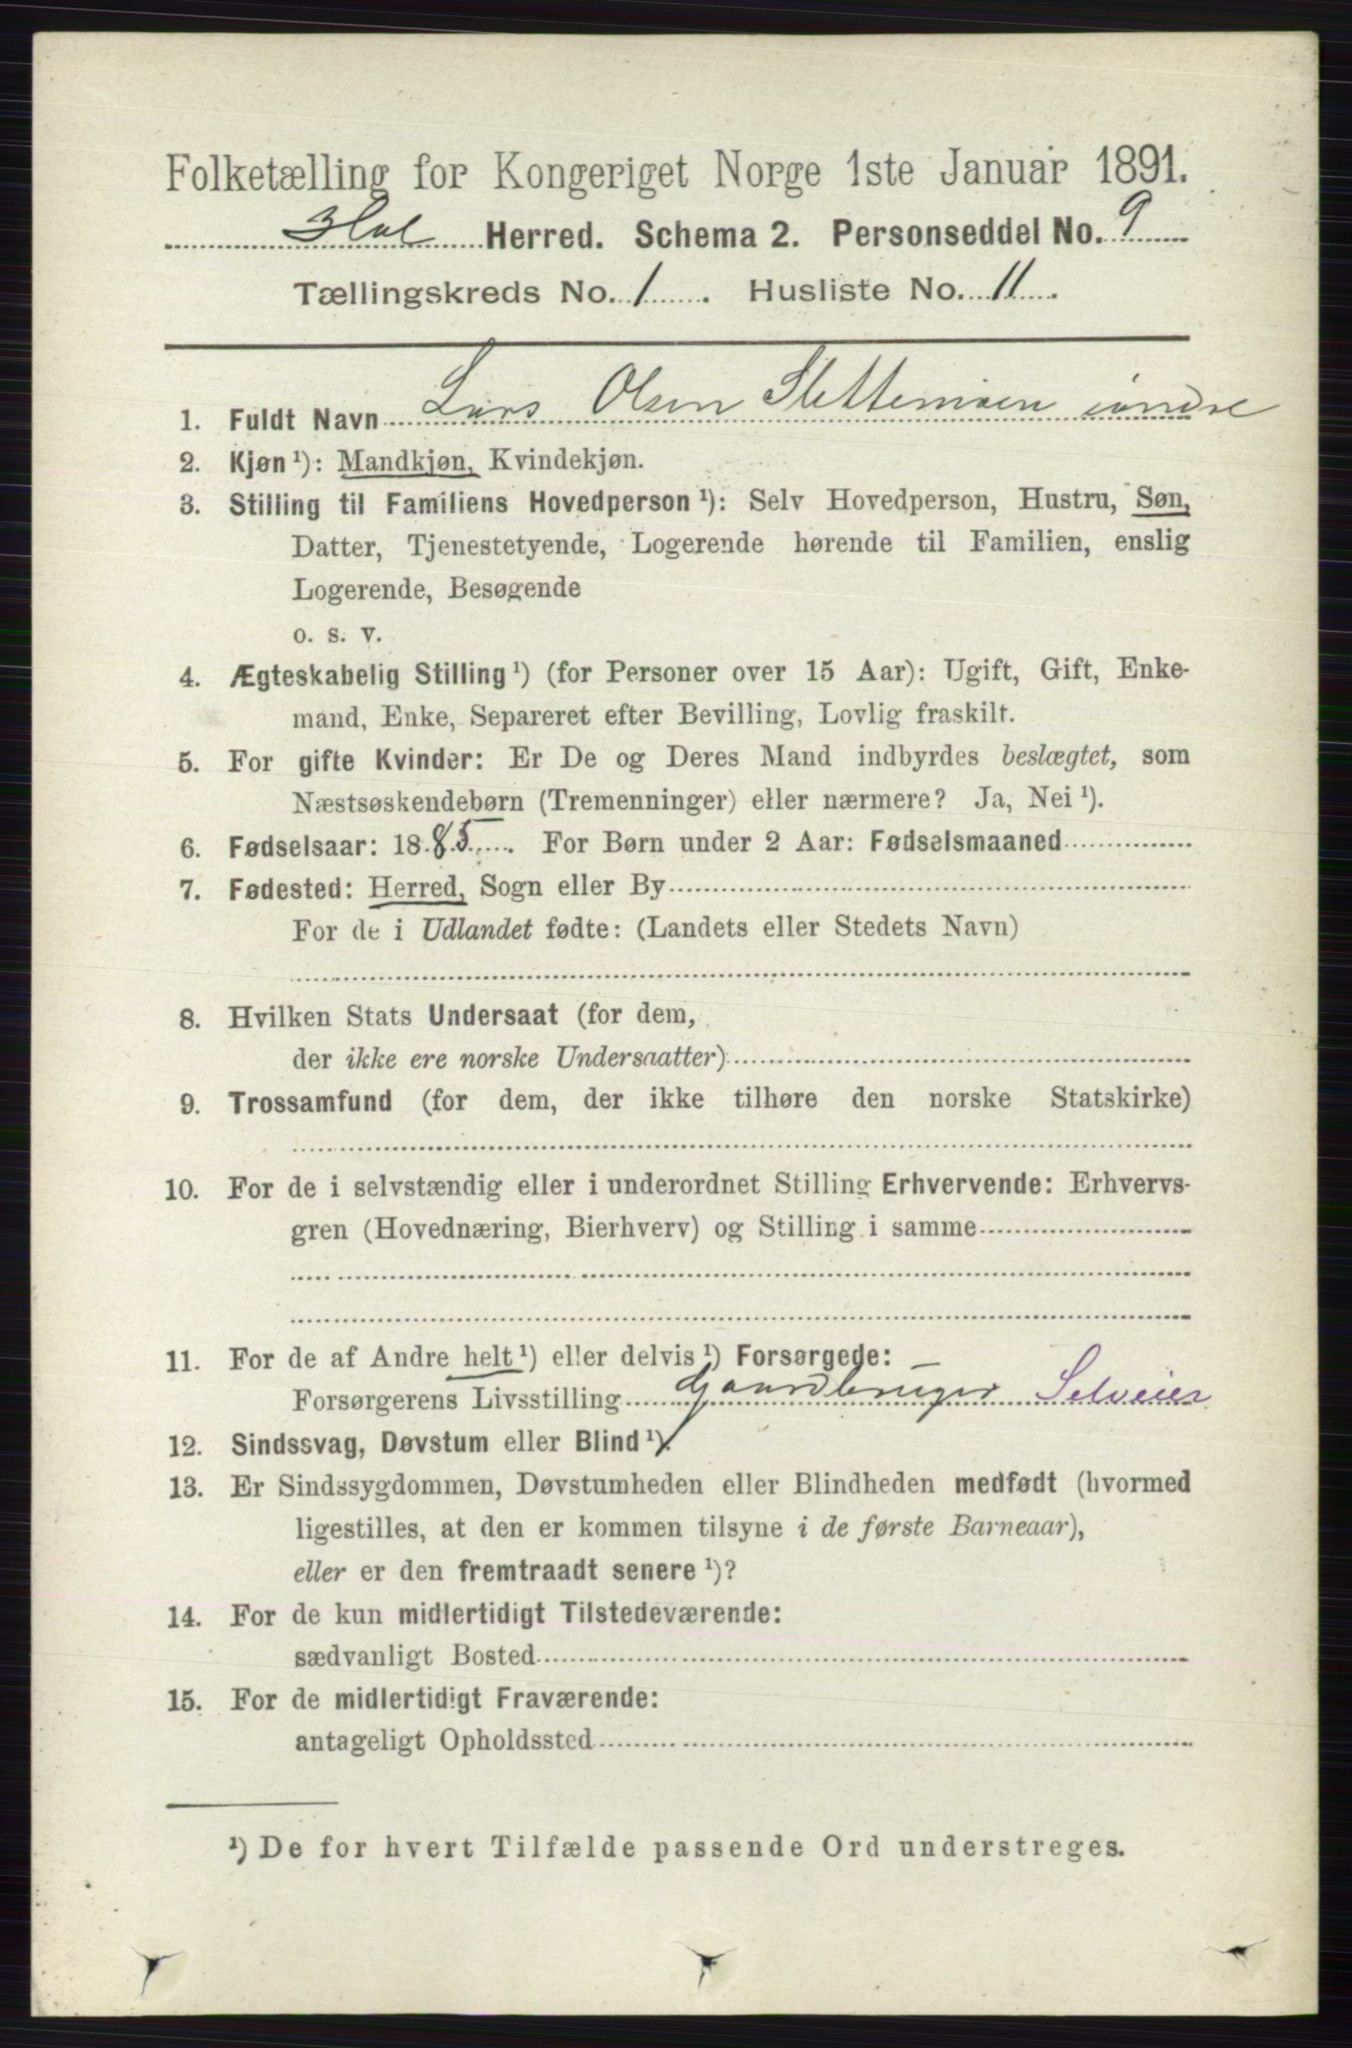 Folketælling for Kongeriget Norge 1ste Januar 1891.
Hol Herred. Schema 2. Personseddel No. 9
Tællingskreds No. 1. Husliste No. 11.
1. Fuldt Navn Lars Olsen Slettemoen indre
2. Kjøn ¹): Mandkjøn, Kvindekjøn.
3. Stilling til Familiens Hovedperson ¹): Selv Hovedperson, Hustru, Søn,
Datter, Tjenestetyende, Logerende hørende til Familien, enslig
Logerende, Besøgende
o. s. v.
4. Ægteskabelig Stilling ¹) (for Personer over 15 Aar): Ugift, Gift, Enke-
mand, Enke, Separeret efter Bevilling, Lovlig fraskilt.
5. For gifte Kvinder: Er De og Deres Mand indbyrdes beslægtet, som
Næstsøskendebørn (Tremenninger) eller nærmere? Ja, Nei ¹).
6. Fødselsaar: 1885. For Børn under 2 Aar: Fødselsmaaned
7. Fødested: Herred, Sogn eller By
For de i Udlandet fødte: (Landets eller Stedets Navn)
8. Hvilken Stats Undersaat (for dem,
der ikke ere norske Undersaatter)
9. Trossamfund (for dem, der ikke tilhøre den norske Statskirke)
10. For de i selvstændig eller i underordnet Stilling Erhvervende: Erhvervs-
gren (Hovednæring, Bierhverv) og Stilling i samme
11. For de af Andre helt ¹) eller delvis ¹) Forsørgede:
Forsørgerens Livsstilling Gaardbruger Selveier
12. Sindssvag, Døvstum eller Blind ¹).
13. Er Sindssygdommen, Døvstumheden eller Blindheden medfødt (hvormed
ligestilles, at den er kommen tilsyne i de første Barneaar),
eller er den fremtraadt senere ¹)?
14. For de kun midlertidigt Tilstedeværende:
sædvanligt Bosted
15. For de midlertidigt Fraværende:
antageligt Opholdssted
¹) De for hvert Tilfælde passende Ord understreges.